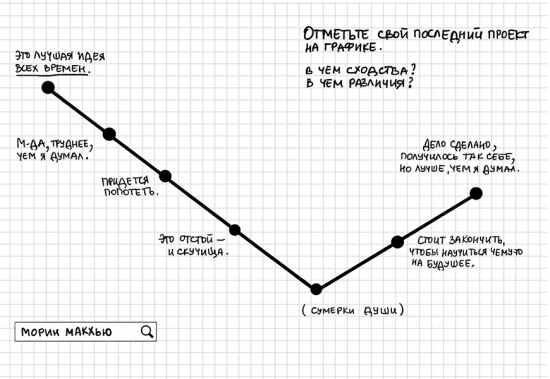 Отметьте свой последний проект
на графике.
В чем сходства?
В чем различия?
Это лучшая идея
всех времен.
М-да, труднее,
чем я думал.
Придется
попотеть.
Это отстой –
и скучища.
(Сумерки души)
Стоит закончить,
чтобы научиться чему-то
на будущее.
Дело сделано,
получилось так себе,
но лучше, чем я думал.
Морин Макхью